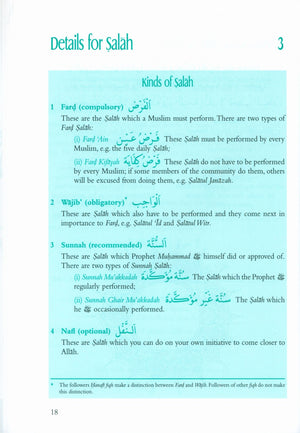 Details for Ṣalāh 3
Kinds of Ṣalāh
1 Farḍ (compulsory) اَلْفَرْضُ
These are the Ṣalāh which a Muslim must perform. There are two types of
Farḍ Ṣalāh:
(i) Farḍ ‘Ain فَرْضُ عَيْنٍ These Ṣalāh must be performed by every
Muslim, e.g. the five daily Ṣalāh;
(ii) Farḍ Kifāyah فَرْضُ كِفَايَةٍ These Ṣalāh do not have to be performed
by every Muslim; if some members of the community do them, others
will be excused from doing them, e.g. Ṣalātul Janāzah.
2 Wājib* (obligatory)* اَلْوَاجِبُ
These are Ṣalāh which also have to be performed and they come next in
importance to Farḍ, e.g. Ṣalātul ‘Īd and Ṣalātul Witr.
3 Sunnah (recommended) اَلسُّنَّةُ
These are Ṣalāh which Prophet Muḥammad ﷺ himself did or approved of.
There are two types of Sunnah Ṣalāh:
(i) Sunnah Mu’akkadah سُنَّةٌ مُؤَكَّدَةٌ The Ṣalāh which the Prophet ﷺ
regularly performed;
(ii) Sunnah Ghair Mu’akkadah سُنَّةٌ غَيْرُ مُؤَكَّدَةٍ The Ṣalāh which
he ﷺ occasionally performed.
4 Nafl (optional) اَلنَّفْلُ
These are Ṣalāh which you can do on your own initiative to come closer to
Allāh.
* The followers Ḥanafī fiqh make a distinction between Farḍ and Wājib. Followers of other fiqh do not make
this distinction.
18